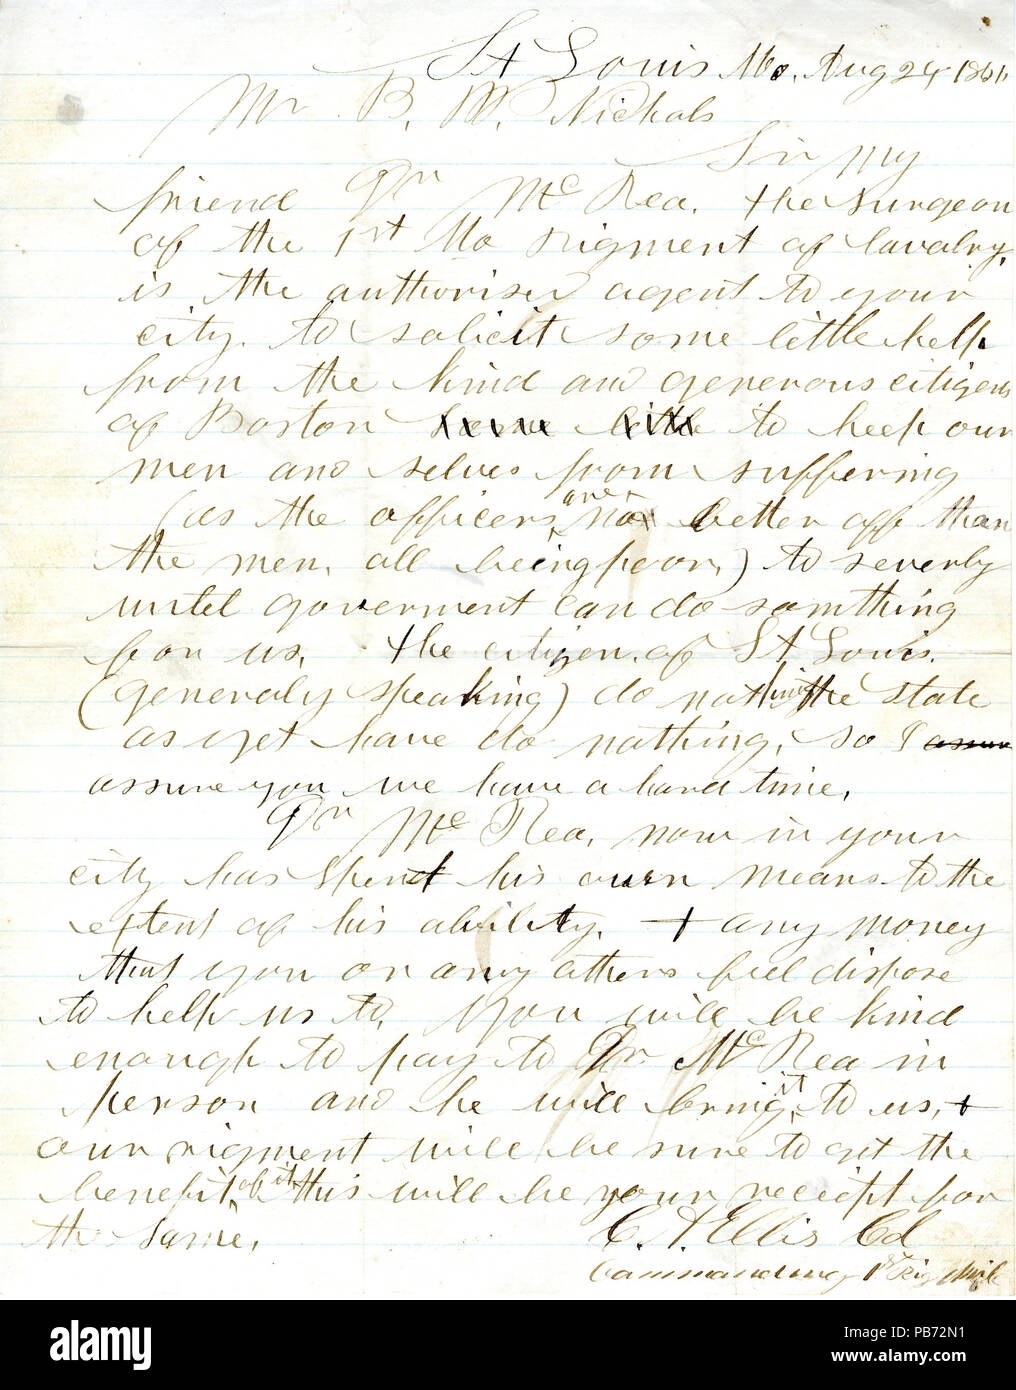 St Louis Mo. Aug 24 1861
Mr B. W. Nichols
Sir My
friend Dr Mc Rea. the surgeon
of the 1st Mo rigment of Cavalry,
is the authoriser agent to your
city. to solicit some little help
from the kind and generous citizens
of Boston to keep our
men and selves from suffering
(as the officers are no better off than
the men, all being poor,) to severly
until goverment can do somthing
for us, the citizen of St Louis.
(generaly speaking) do not the state
as yet have do nothing, so I assure
assure you we have a hard time.
Dr Mc Rea, now in your
city has spent his own means to the
extent of his ability, + any money
that you or any others feel dispose
to help us to, you will be kind
enough to pay to Dr Mc Rea in
person and he will bring it to us, +
our rigment will be sure to get the
benefit of it this will be your receipt for
the same,
C. A. Ellis Col
Commanding 1st Rig
alamy
Image ID: PB72N1
www.alamy.com